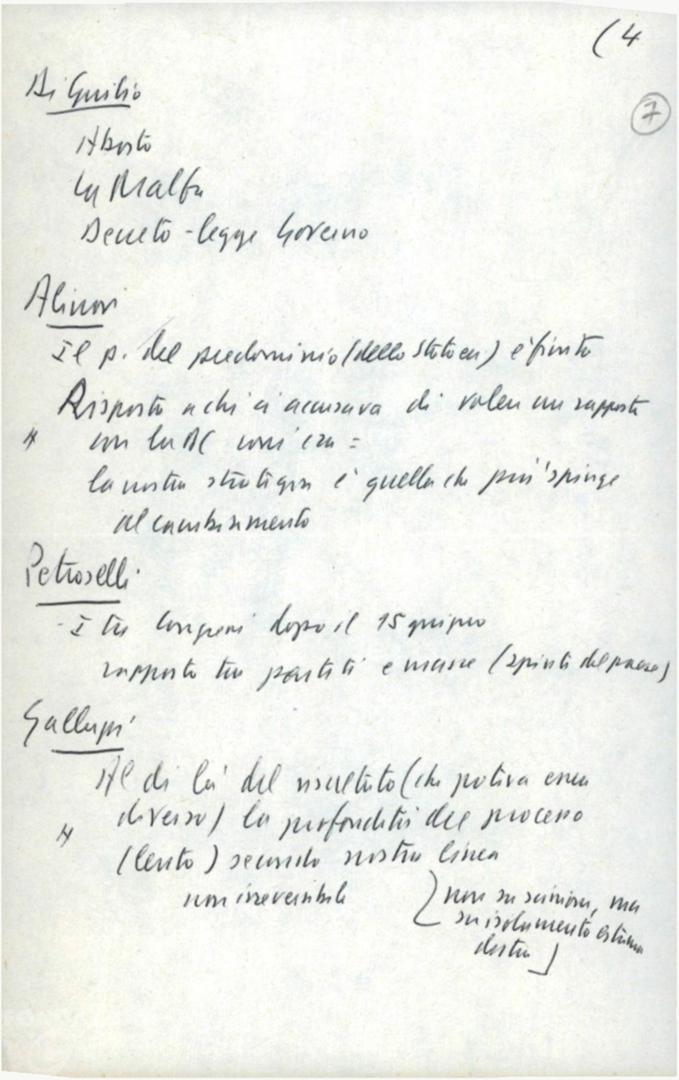 (4
7
Di Giulio
Aborto
La Malfa
Decreto-legge Governo
Alinovi
Il p. del predominio (dello Stato ecc) è finito
Risposta a chi ci accusava di voler un rapporto
con la DC com'era =
la nostra strategia è quella che più spinge
al cambiamento
Petroselli
- I tre Congressi dopo il 15 giugno
rapporto tra partiti e masse (spinti dal paese)
Galluzzi
Al di là del risultato (che poteva essere
diverso) la profondità del processo
(lento) secondo nostra linea
non irreversibile
non su scissioni, ma
su isolamento estrema
destra